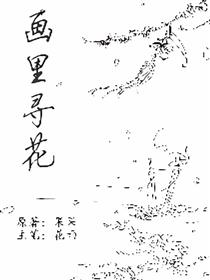 画里寻花
原著：
主笔：花